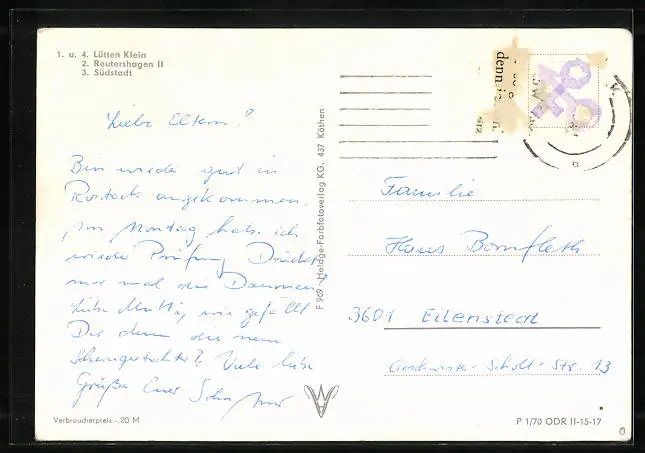 1. u. 4. Lütten Klein
2. Reutershagen II
3. Südstadt
Liebe Eltern!
Bin wieder gut in
Rostock angekommen.
Am Montag habe ich
wieder Prüfung Drückt
mir mal die Daumen!
Liebe Mutti, wie gefällt
Dir denn die neue
Schwiegertochter? Viele liebe
Grüße Euer Sohn
Verbraucherpreis -.20 M
F 969 - Heldge-Farbfotoverlag KG, 437 Köthen
denn
Familie
Hans Bomfleth
3601 Eilenstedt
Geschwister-Scholl-Str. 13
P 1/70 ODR II-15-17